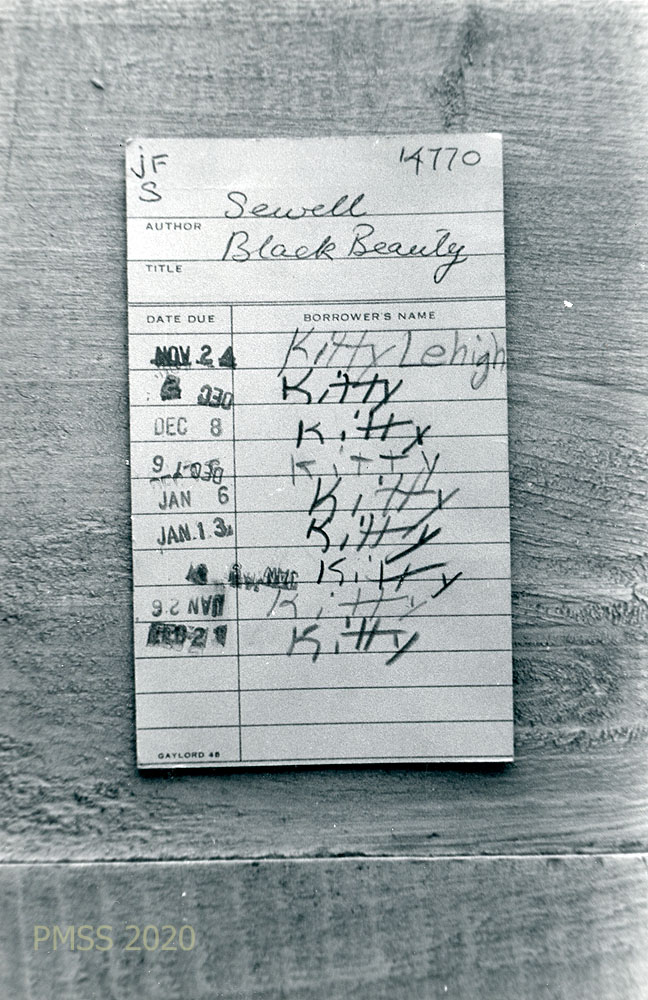 jF
14770
S
Sewell
AUTHOR
Black Beauty
TITLE
DATE DUE BORROWER'S NAME
NOV. 24 Kitty Lehigh
DEC Kitty
DEC 8 Kitty
Kitty
JAN 6 Kitty
JAN. 13 Kitty
JAN Kitty
JAN 26 Kitty
Kitty
GAYLORD 48
PMSS 2020